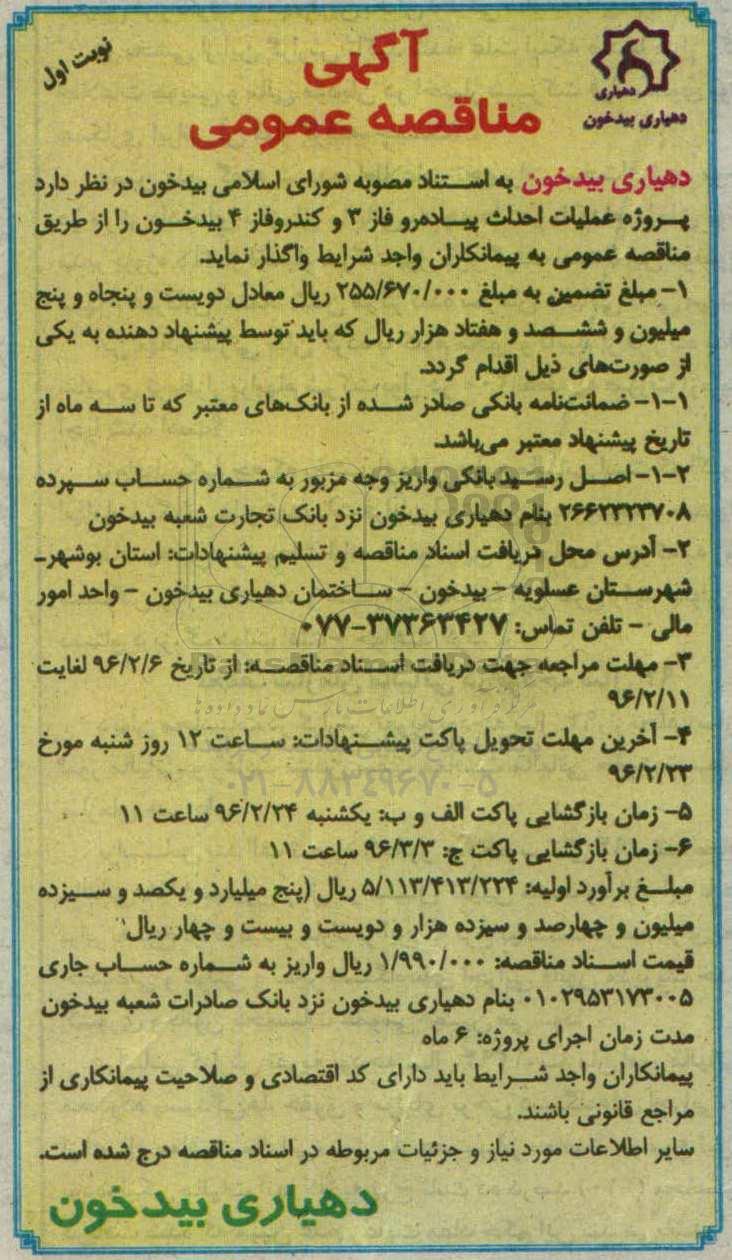 نوبت اول
آگهی
مناقصه عمومی
دهیاری
دهیاری بیدخون
دهیاری بیدخون به استناد مصوبه شورای اسلامی بیدخون در نظر دارد
پروژه عملیات احداث پیاده‌رو فاز ۳ و کندروفاز ۴ بیدخون را از طریق
مناقصه عمومی به پیمانکاران واجد شرایط واگذار نماید.
۱- مبلغ تضمین به مبلغ ۲۵۵/۶۷۰/۰۰۰ ریال معادل دویست و پنجاه و پنج
میلیون و ششصد و هفتاد هزار ریال که باید توسط پیشنهاد دهنده به یکی
از صورت‌های ذیل اقدام گردد.
۱-۱- ضمانت‌نامه بانکی صادر شده از بانک‌های معتبر که تا سه ماه از
تاریخ پیشنهاد معتبر می‌باشد.
۱-۲- اصل رسید بانکی واریز وجه مزبور به شماره حساب سپرده
۲۶۶۲۳۲۳۷۰۸ بنام دهیاری بیدخون نزد بانک تجارت شعبه بیدخون
۲- آدرس محل دریافت اسناد مناقصه و تسلیم پیشنهادات: استان بوشهر-
شهرستان عسلویه - بیدخون - ساختمان دهیاری بیدخون - واحد امور
مالی - تلفن تماس: ۳۷۳۶۳۴۲۷-۰۷۷
۳- مهلت مراجعه جهت دریافت اسناد مناقصه: از تاریخ ۹۶/۲/۶ لغایت
۹۶/۲/۱۱
۴- آخرین مهلت تحویل پاکت پیشنهادات: ساعت ۱۲ روز شنبه مورخ
۹۶/۲/۲۳
۵- زمان بازگشایی پاکت الف و ب: یکشنبه ۹۶/۲/۲۴ ساعت ۱۱
۶- زمان بازگشایی پاکت ج: ۹۶/۳/۳ ساعت ۱۱
مبلغ برآورد اولیه: ۵/۱۱۳/۴۱۳/۲۲۴ ریال (پنج میلیارد و یکصد و سیزده
میلیون و چهارصد و سیزده هزار و دویست و بیست و چهار ریال
قیمت اسناد مناقصه: ۱/۹۹۰/۰۰۰ ریال واریز به شماره حساب جاری
۰۱۰۲۹۵۳۱۷۳۰۰۵ بنام دهیاری بیدخون نزد بانک صادرات شعبه بیدخون
مدت زمان اجرای پروژه: ۶ ماه
پیمانکاران واجد شرایط باید دارای کد اقتصادی و صلاحیت پیمانکاری از
مراجع قانونی باشند.
سایر اطلاعات مورد نیاز و جزئیات مربوطه در اسناد مناقصه درج شده است.
دهیاری بیدخون
۰۲۱-۸۸۳۴۹۶۷۰-۵